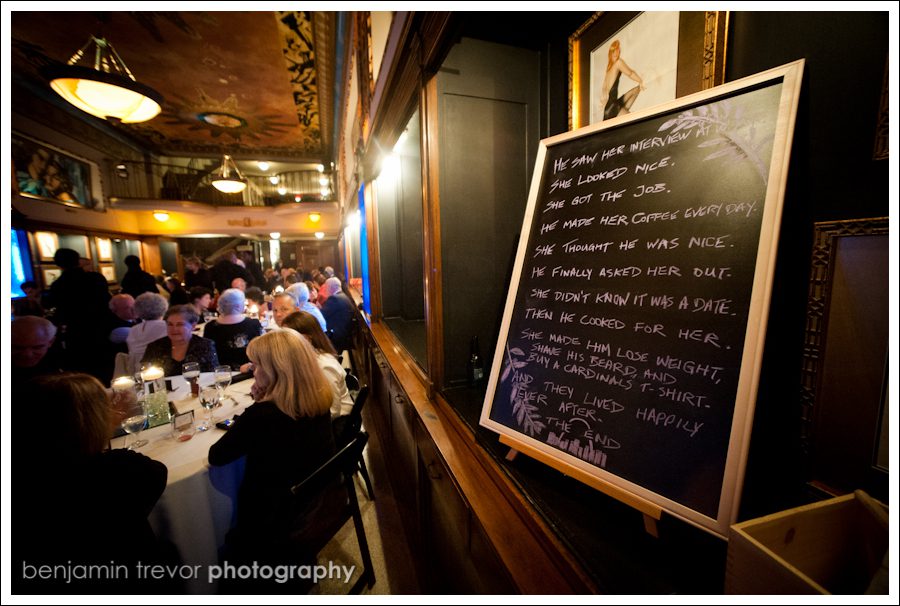 HE SAW HER INTERVIEW AT
SHE LOOKED NICE.
SHE GOT THE JOB.
HE MADE HER COFFEE EVERY DAY.
SHE THOUGHT HE WAS NICE.
HE FINALLY ASKED HER OUT.
SHE DIDN'T KNOW IT WAS A DATE.
THEN HE COOKED FOR HER.
SHE MADE HIM LOSE WEIGHT,
SHAVE HIS BEARD, AND
BUY A CARDINALS T-SHIRT.
AND THEY LIVED HAPPILY
EVER AFTER.
THE END
benjamin trevor photography